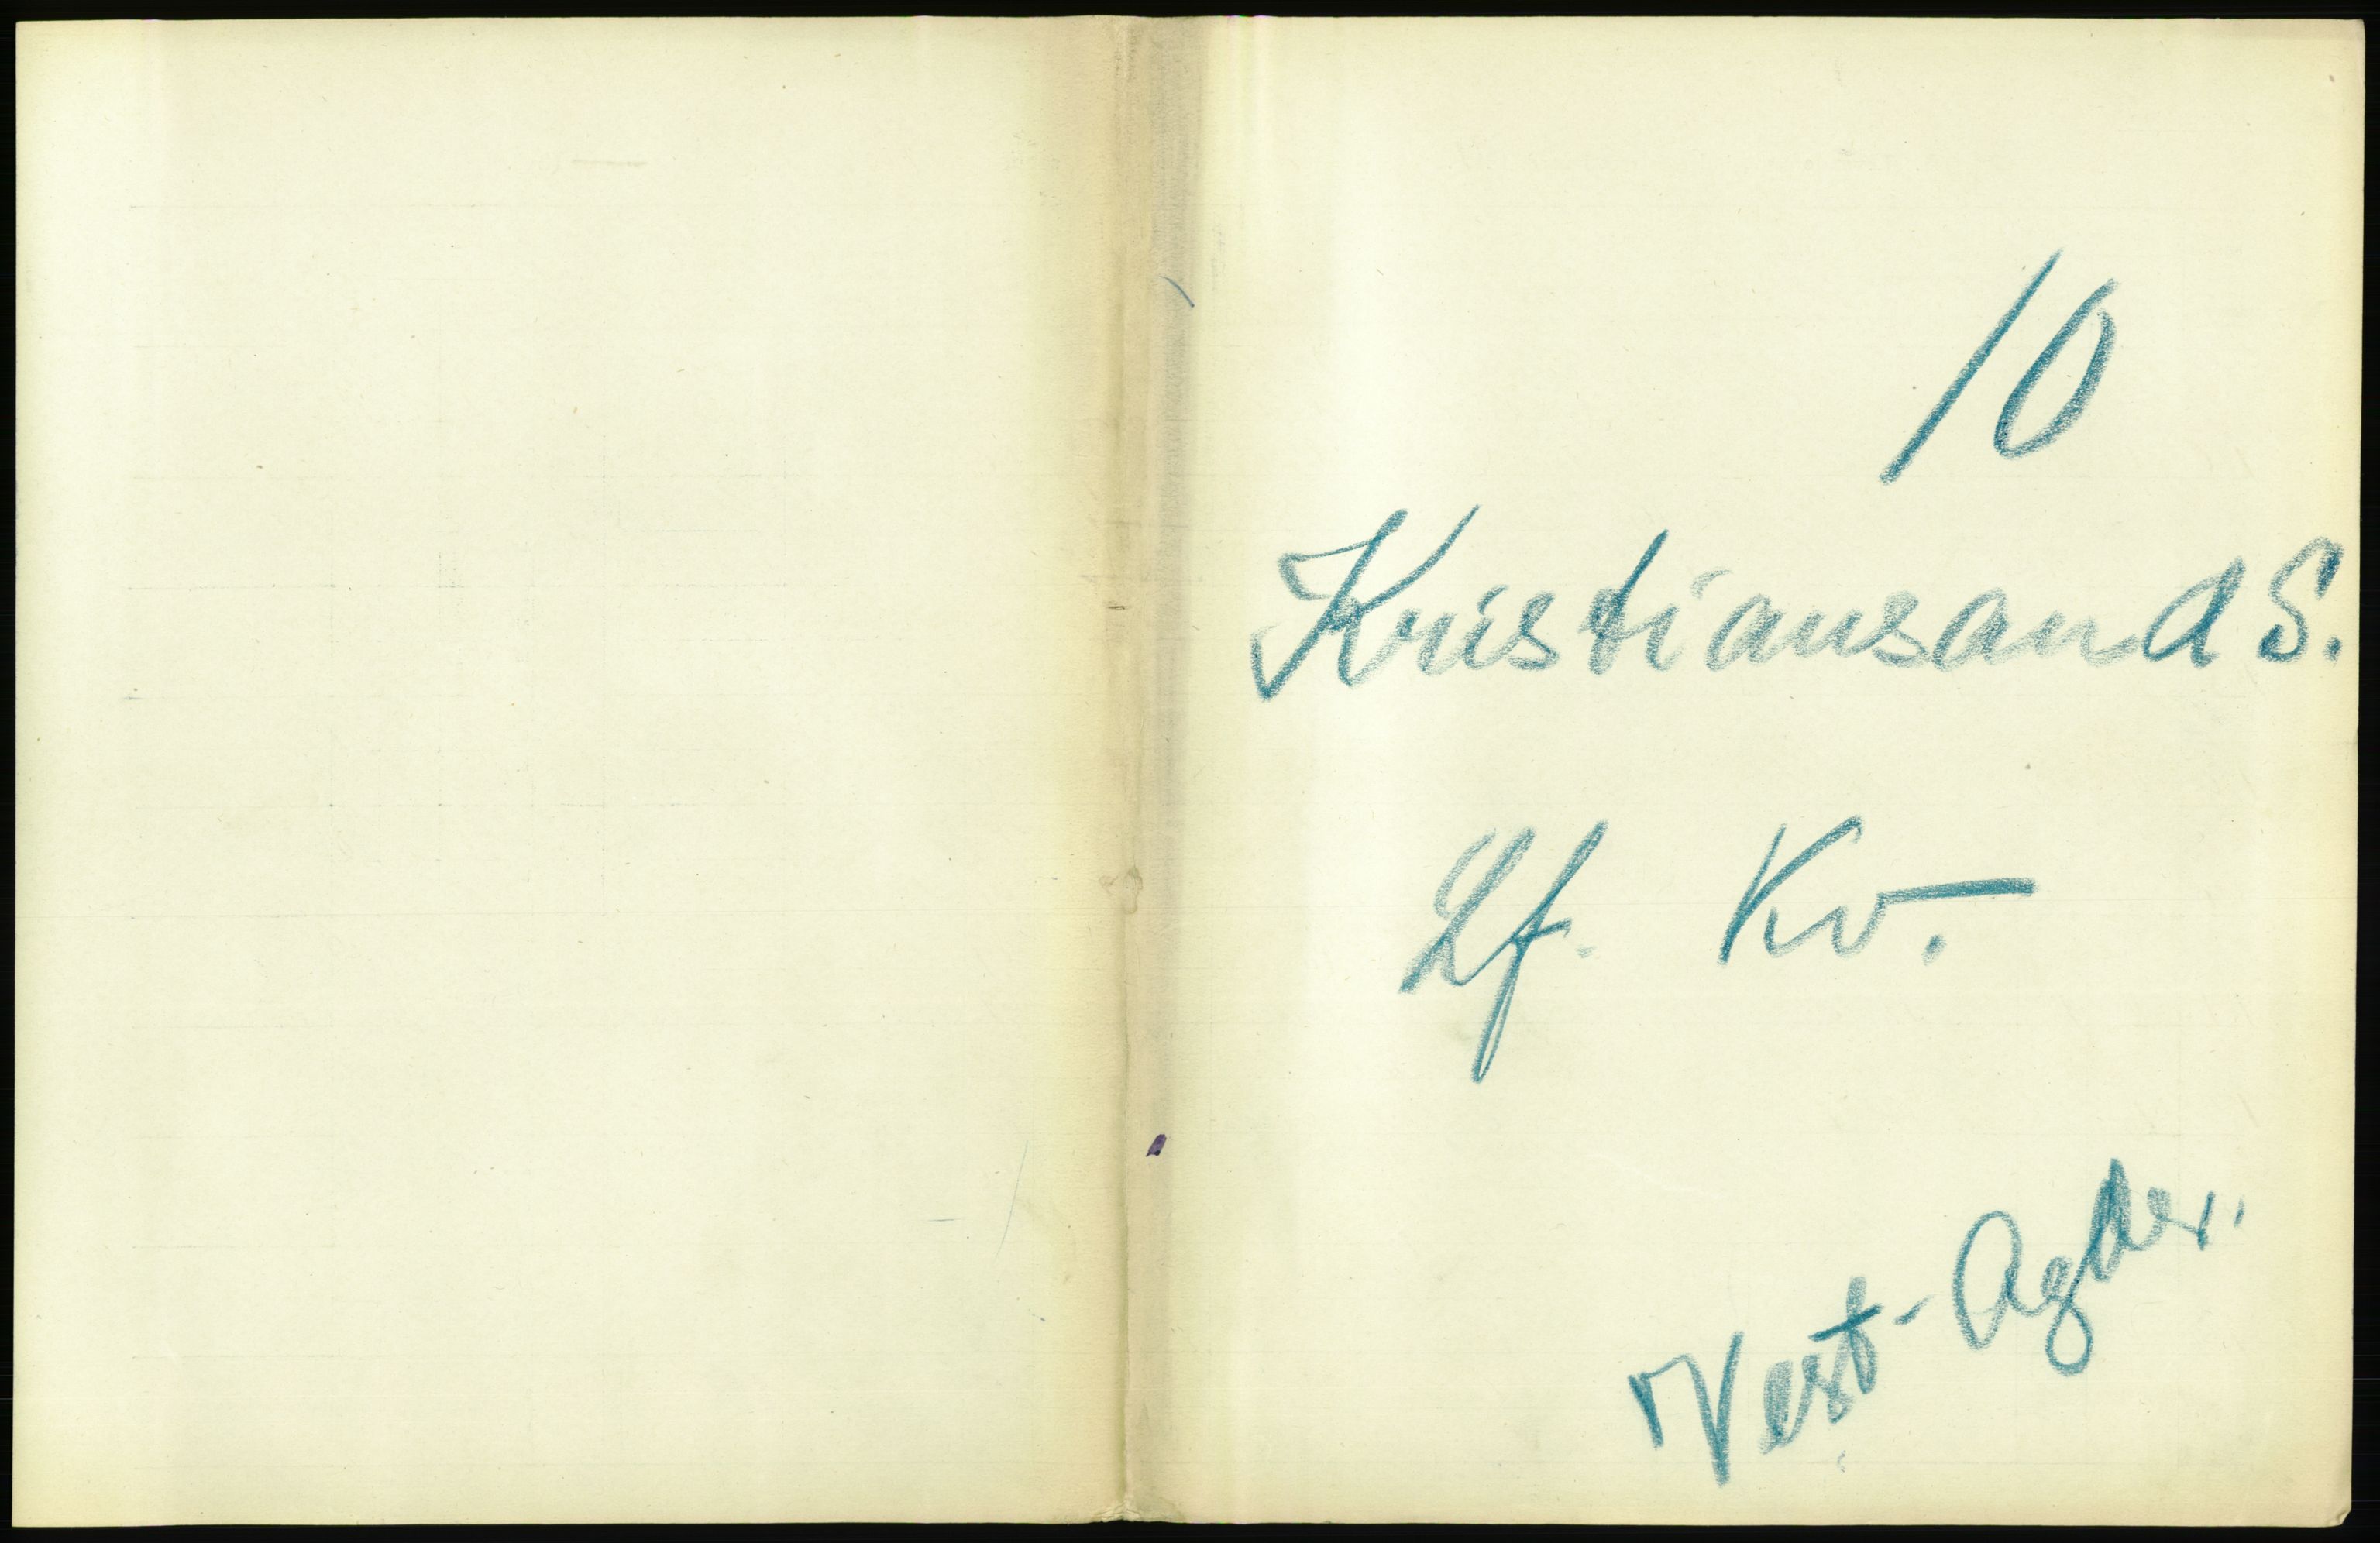 10
Kristiansand S.
Lf. Kv.
Vest-Agder.